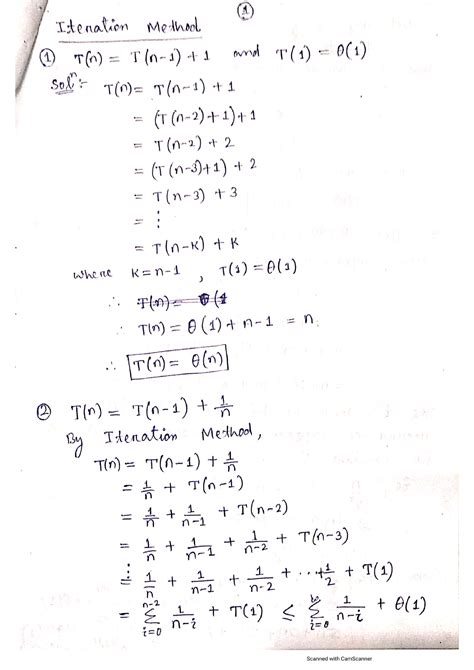 ①
Iteration Method
① T(n) = T(n-1) + 1 and T(1) = θ(1)
Solⁿ:- T(n) = T(n-1) + 1
= (T(n-2)+1)+1
= T(n-2) + 2
= (T(n-3)+1) + 2
= T(n-3) + 3
= ⋮
= T(n-K) + K
where K = n-1 , T(1) = θ(1)
∴ T(n) = θ(1
∴ T(n) = θ(1) + n-1 = n
∴ T(n) = θ(n)
② T(n) = T(n-1) + 1/n
By Iteration Method,
T(n) = T(n-1) + 1/n
= 1/n + T(n-1)
= 1/n + 1/n-1 + T(n-2)
= 1/n + 1/n-1 + 1/n-2 + T(n-3)
⋮ = 1/n + 1/n-1 + 1/n-2 + ... + 1/2 + T(1)
= n-2 Σ i=0 1/n-i + T(1) ≤ Σ i=0 1/n-i + θ(1)
Scanned with CamScanner